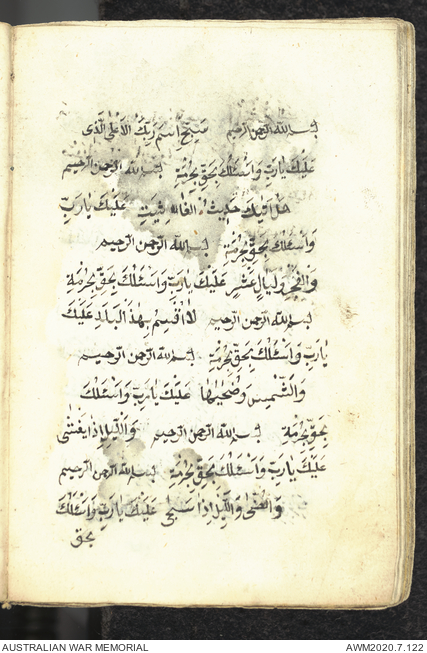 بسم الله الرحمن الرحيم سبح اسم ربك الاعلى الذى
عليك يارب واسئلك بحق بحرمة بسم الله الرحمن الرحيم
هل اتيك حديث الغاشيت عليك يارب
واسئلك بحق بحرمة بسم الله الرحمن الرحيم
والفجر وليال عشر عليك يارب واسئلك بحق بحرمة
بسم الله الرحمن الرحيم لا اقسم بهذا البلد عليك
يارب واسئلك بحق بحرمة بسم الله الرحمن الرحيم
والشمس وضحيها عليك يارب واسئلك
بحق بحرمة بسم الله الرحمن الرحيم والليل اذا يغشى
عليك يارب واسئلك بحق بحرمة بسم الله الرحمن الرحيم
والضحى والليل اذا سجى عليك يارب واسئلك
بحق
AUSTRALIAN WAR MEMORIAL AWM2020.7.122